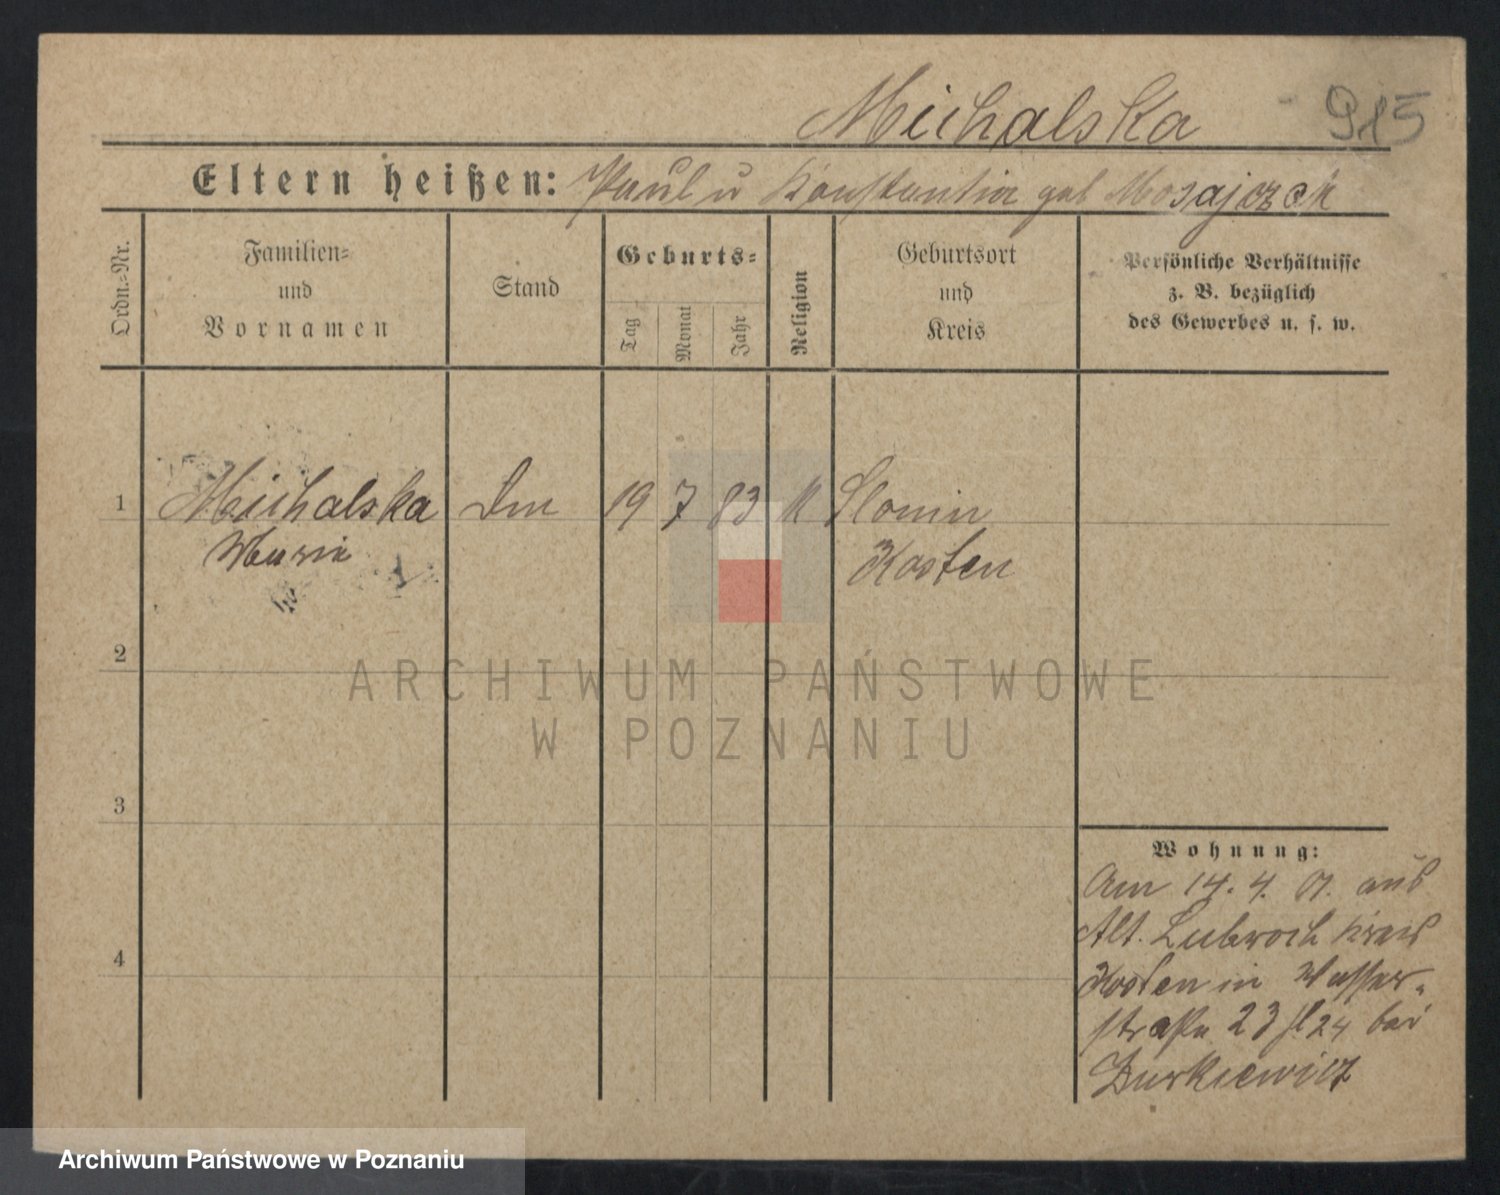 Michalska 915
Eltern heißen: Paul u Konstantia geb Mosajczek
Ordn.-Nr.
Familien-
und
Vornamen
Stand
Geburts-
Tag
Monat
Jahr
Religion
Geburtsort
und
Kreis
Persönliche Verhältnisse
z. B. bezüglich
des Gewerbes u. s. w.
1 Michalska 19 7 83 K Slonin
Marie Kosten
2
ARCHIWUM PAŃSTWOWE
W POZNANIU
3
Wohnung:
Am 14. 4. 01. aus
Alt. Lubrosch Kreis
4
Kosten in Wasser-
straße 23 24 bei
Archiwum Państwowe w Poznaniu